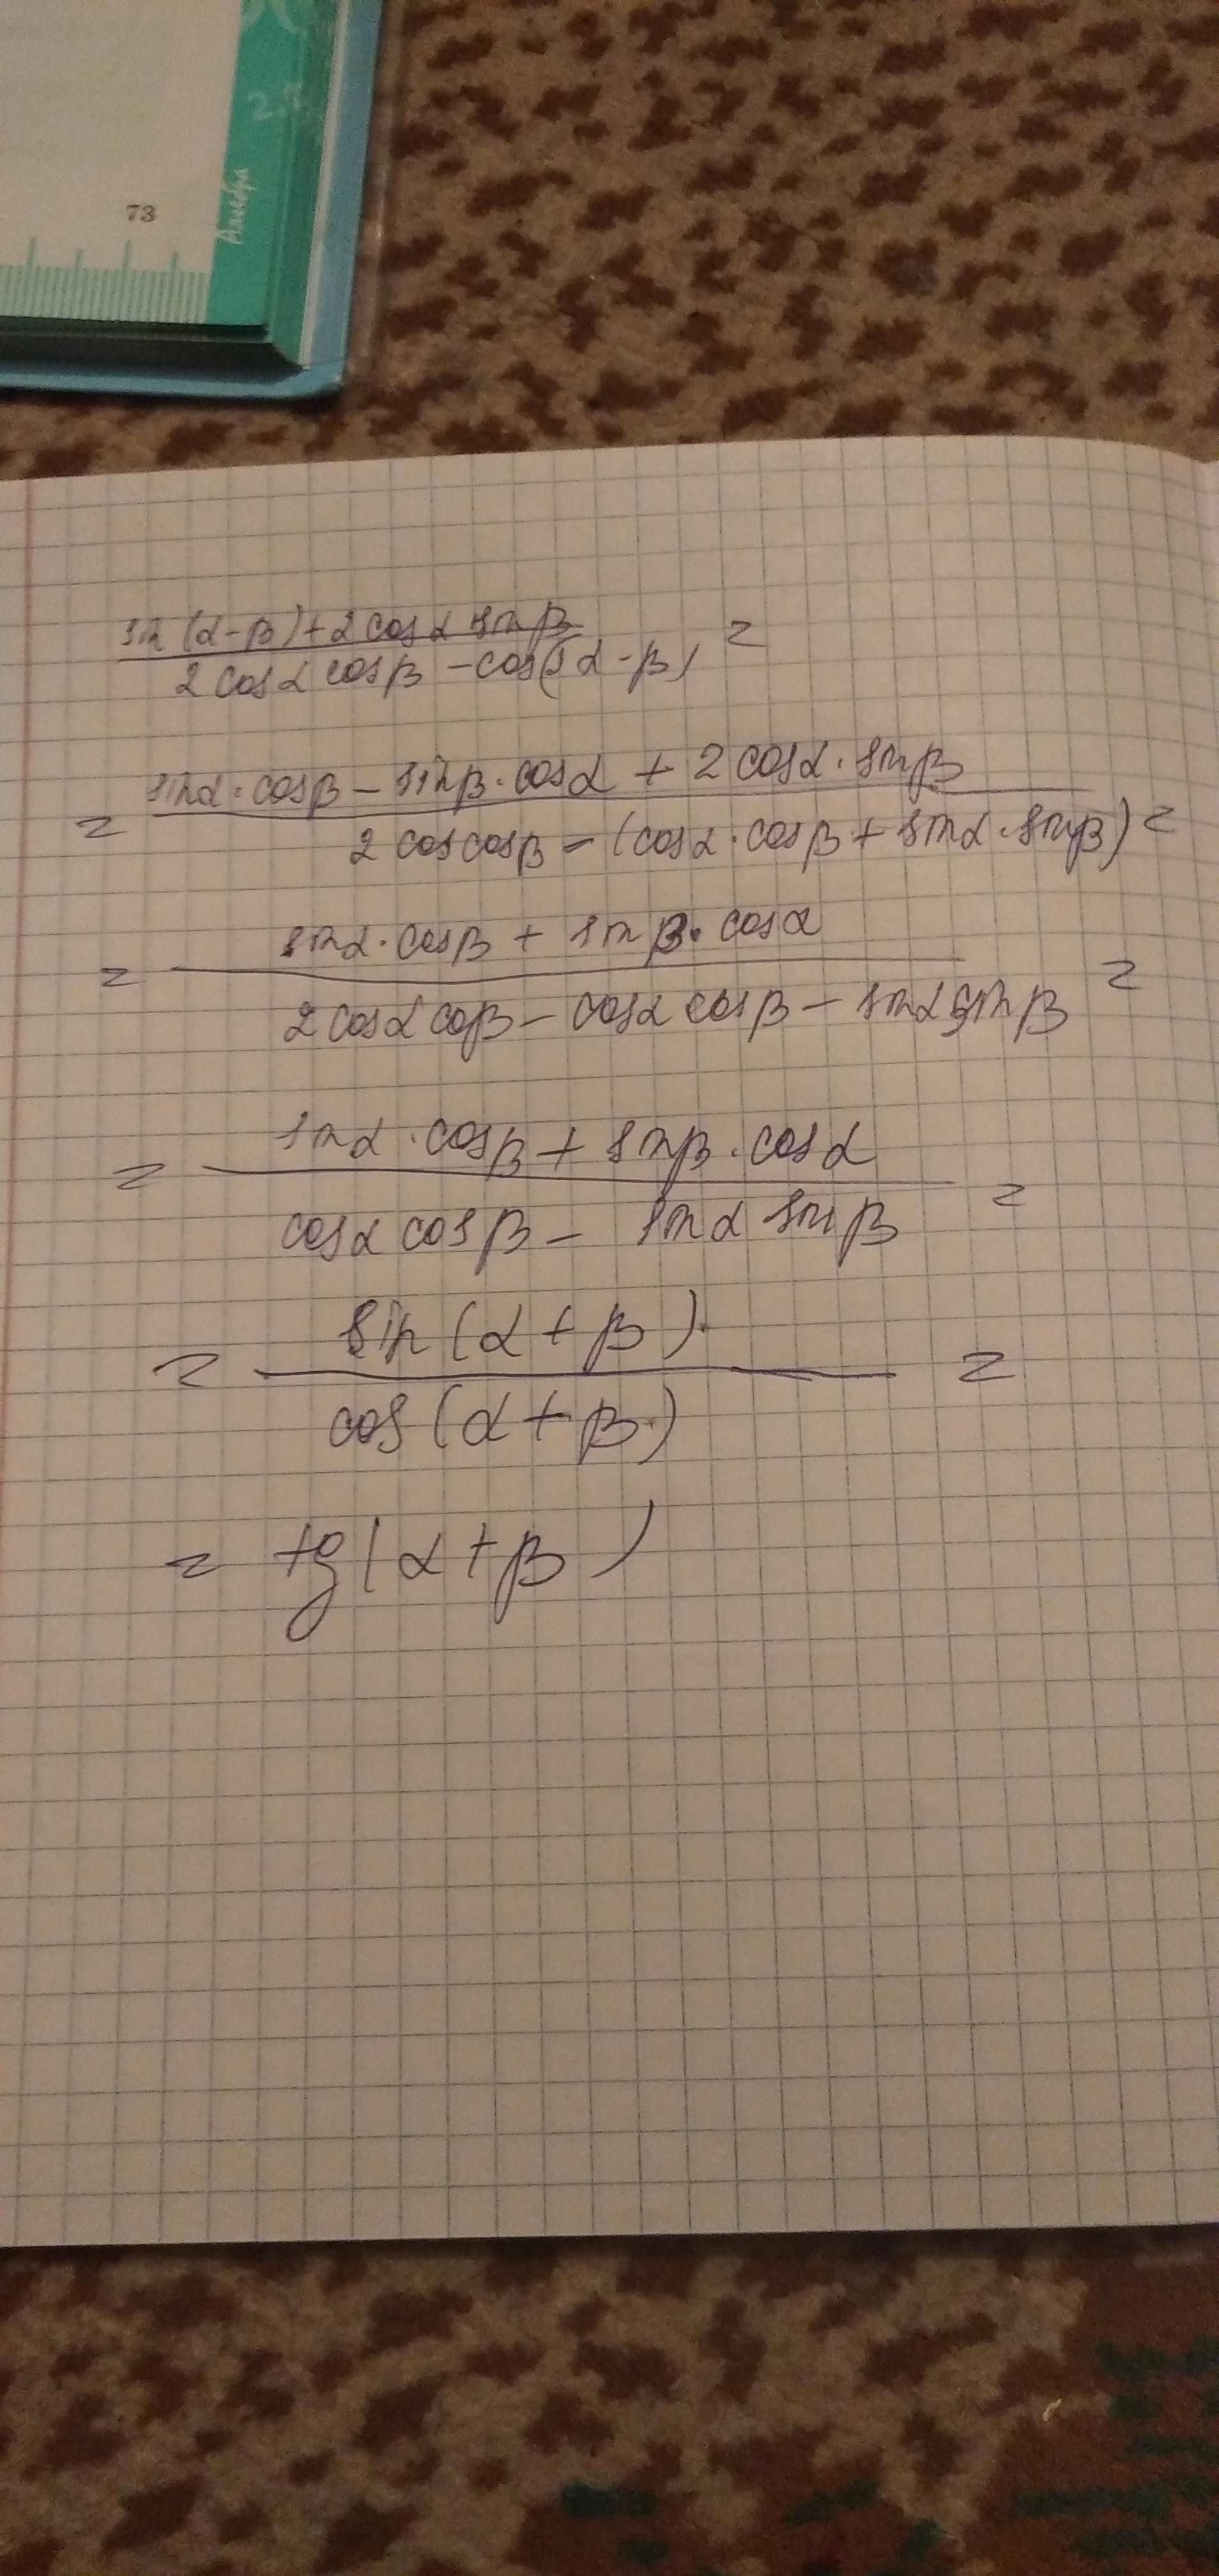 73
Алгебра
sin(α-β)+2cosα sinβ
2cosα cosβ - cos(α-β) =
= sinα·cosβ - sinβ·cosα + 2cosα·sinβ
2coscosβ - (cosα·cosβ + sinα·sinβ) =
= sinα·cosβ + sinβ·cosα
2cosα coβ - cosα cosβ - sinα sinβ =
= sinα·cosβ + sinβ·cosα
cosα cosβ - sinα sinβ =
= sin(α+β)
cos(α+β) =
= tg(α+β)